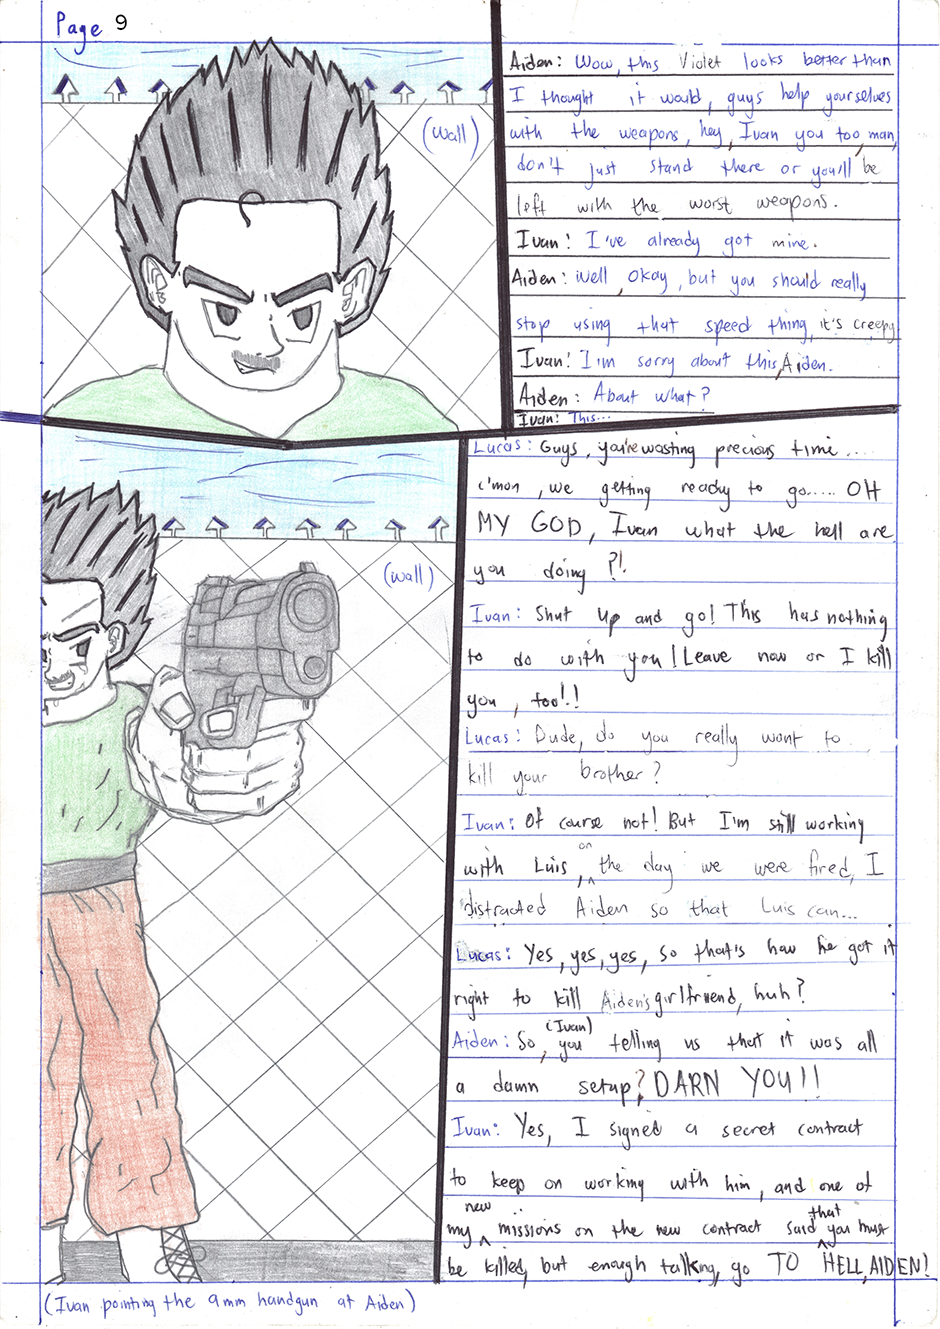 Page 9
(wall)
Aiden: Wow, this Violet looks better than
I thought it would, guys help yourselves
with the weapons, hey, Ivan you too, man,
don't just stand there or you'll be
left with the worst weapons.
Ivan: I've already got mine.
Aiden: Well, okay, but you should really
stop using that speed thing, it's creepy
Ivan: I'm sorry about this, Aiden.
Aiden: About what?
Ivan: This...
(wall)
Lucas: Guys, you're wasting precious time....
c'mon, we getting ready to go..... OH
MY GOD, Ivan what the hell are
you doing?!
Ivan: Shut up and go! This has nothing
to do with you! Leave now or I kill
you, too!!
Lucas: Dude, do you really want to
kill your brother?
Ivan: Of course not! But I'm still working
with Luis, on the day we were fired, I
distracted Aiden so that Luis can...
Lucas: Yes, yes, yes, so that's how he got it
right to kill Aiden's girlfriend, huh?
Aiden: So, (Ivan) you telling us that it was all
a damn setup? DARN YOU!!
Ivan: Yes, I signed a secret contract
to keep on working with him, and one of
my new missions on the new contract said that you must
be killed, but enough talking, go TO HELL, AIDEN!
(Ivan pointing the 9mm handgun at Aiden)